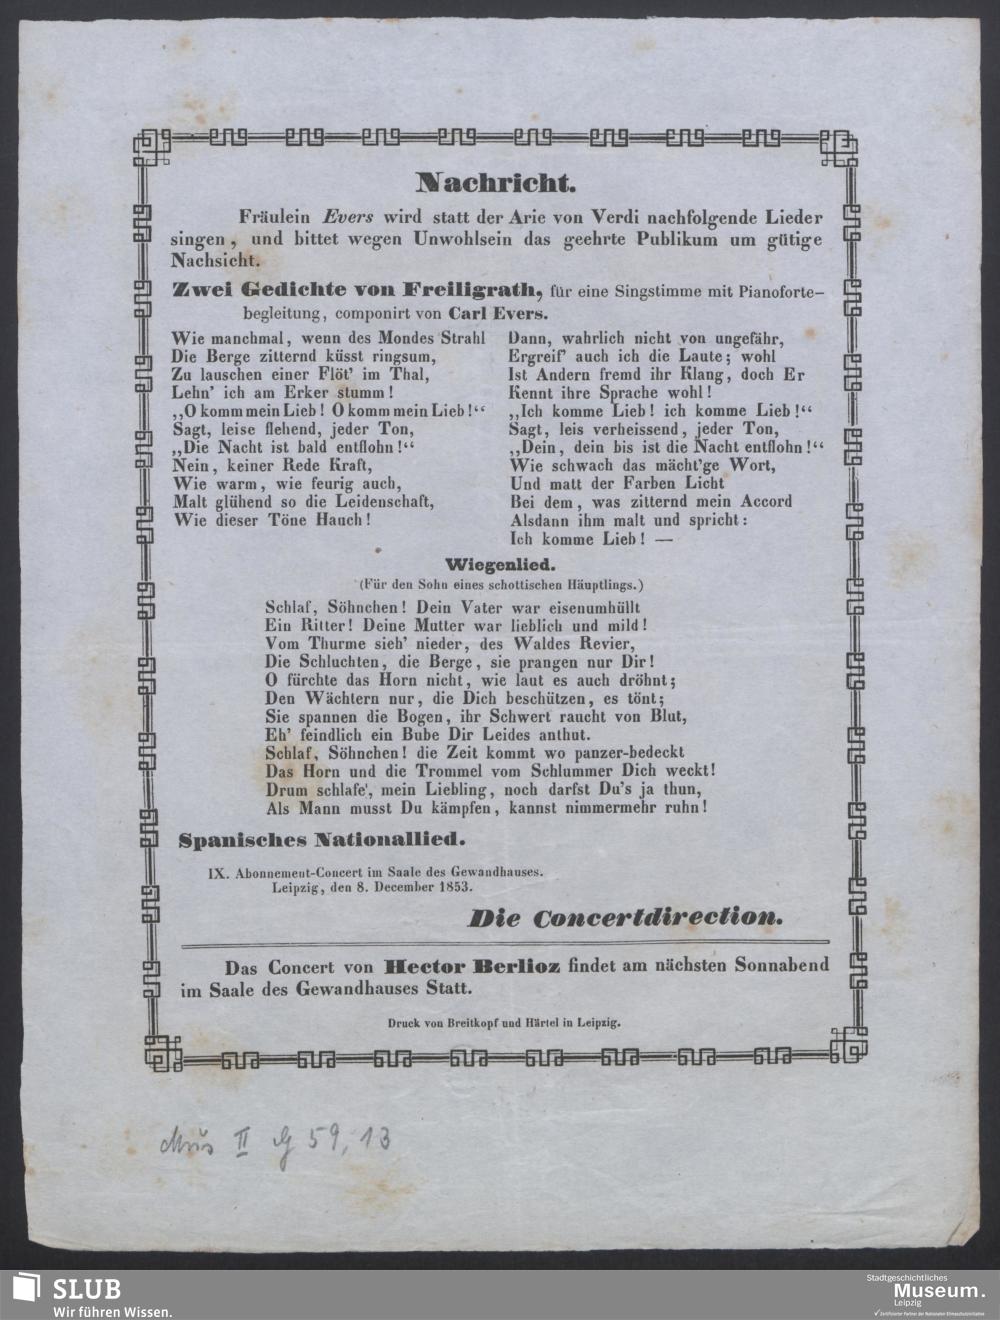 Nachricht.
Fräulein Evers wird statt der Arie von Verdi nachfolgende Lieder
singen, und bittet wegen Unwohlsein das geehrte Publikum um gütige
Nachsicht.
Zwei Gedichte von Freiligrath, für eine Singstimme mit Pianoforte-
begleitung, componirt von Carl Evers.
Wie manchmal, wenn des Mondes Strahl
Die Berge zitternd küsst ringsum,
Zu lauschen einer Flöt' im Thal,
Lehn' ich am Erker stumm!
„O komm mein Lieb! O komm mein Lieb!“
Sagt, leise flehend, jeder Ton,
„Die Nacht ist bald entflohn!“
Nein, keiner Rede Kraft,
Wie warm, wie feurig auch,
Malt glühend so die Leidenschaft,
Wie dieser Töne Hauch!
Dann, wahrlich nicht von ungefähr,
Ergreif' auch ich die Laute; wohl
Ist Andern fremd ihr Klang, doch Er
Kennt ihre Sprache wohl!
„Ich komme Lieb! ich komme Lieb!“
Sagt, leis verheissend, jeder Ton,
„Dein, dein bis ist die Nacht entflohn!“
Wie schwach das mächt'ge Wort,
Und matt der Farben Licht
Bei dem, was zitternd mein Accord
Alsdann ihm malt und spricht:
Ich komme Lieb! —
Wiegenlied.
(Für den Sohn eines schottischen Häuptlings.)
Schlaf, Söhnchen! Dein Vater war eisenumhüllt
Ein Ritter! Deine Mutter war lieblich und mild!
Vom Thurme sieh' nieder, des Waldes Revier,
Die Schluchten, die Berge, sie prangen nur Dir!
O fürchte das Horn nicht, wie laut es auch dröhnt;
Den Wächtern nur, die Dich beschützen, es tönt;
Sie spannen die Bogen, ihr Schwert raucht von Blut,
Eh' feindlich ein Bube Dir Leides anthut.
Schlaf, Söhnchen! die Zeit kommt wo panzer-bedeckt
Das Horn und die Trommel vom Schlummer Dich weckt!
Drum schlafe', mein Liebling, noch darfst Du's ja thun,
Als Mann musst Du kämpfen, kannst nimmermehr ruhn!
Spanisches Nationallied.
IX. Abonnement-Concert im Saale des Gewandhauses.
Leipzig, den 8. December 1853.
Die Concertdirection.
Das Concert von Hector Berlioz findet am nächsten Sonnabend
im Saale des Gewandhauses Statt.
Druck von Breitkopf und Härtel in Leipzig.
Mus II G 59, 13
SLUB
Wir führen Wissen.
Stadtgeschichtliches
Museum.
Leipzig
Zertifizierter Partner der Nationalen Klimaschutzinitiative